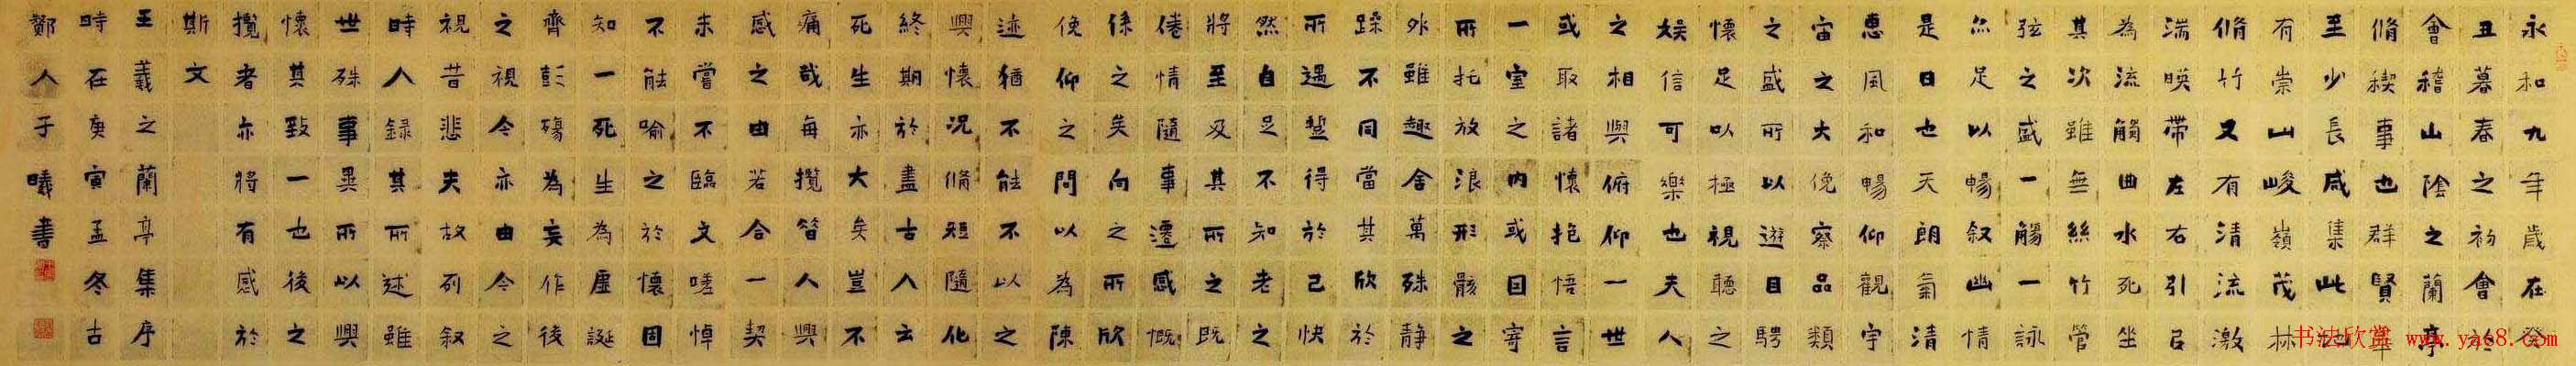 永和九年歲在癸
丑暮春之初會於
會稽山陰之蘭亭
脩稧事也群賢畢
至少長咸集此地
有崇山峻嶺茂林
脩竹又有清流激
湍暎帶左右引㠯
為流觴曲水死坐
其次雖無絲竹管
弦之盛一觴一詠
亦足以暢叙幽情
是日也天朗氣清
惠風和暢仰觀宇
宙之大俛察品類
之盛所以遊目騁
懷足以極視聽之
娛信可樂也夫人
之相與俯仰一世
或取諸懷抱悟言
一室之內或因寄
所托放浪形骸之
外雖趣舍萬殊静
躁不同當其欣於
所遇蹔得於己快
然自足不知老之
將至及其所之既
倦情隨事遷感慨
係之矣向之所欣
俛仰之問以為陳
迹猶不能不以之
興懷況脩短隨化
終期於盡古人云
死生亦大矣豈不
痛哉每攬昔人興
感之由若合一契
未嘗不臨文嗟悼
不能喻之於懷固
知一死生為虛誕
齊彭殤為妄作後
之視今亦由今之
視昔悲夫故列叙
時人錄其所述雖
世殊事異所以興
懷其致一也後之
攬者亦將有感於
斯文
王羲之蘭亭集序
時在庚寅孟冬古
鄭人于曦書
书法欣赏 www.yac8.com